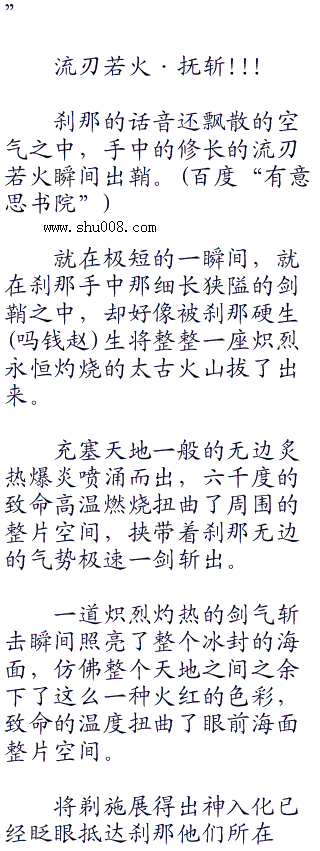 ”
流刃若火·抚斩!!!
刹那的话音还飘散的空
气之中，手中的修长的流刃
若火瞬间出鞘。(百度“有意
思书院”)
www.shu008.com
就在极短的一瞬间，就
在刹那手中那细长狭隘的剑
鞘之中，却好像被刹那硬生
(吗钱赵)生将整整一座炽烈
永恒灼烧的太古火山拔了出
来。
充塞天地一般的无边炙
热爆炎喷涌而出，六千度的
致命高温燃烧扭曲了周围的
整片空间，挟带着刹那无边
的气势极速一剑斩出。
一道炽烈灼热的剑气斩
击瞬间照亮了整个冰封的海
面，仿佛整个天地之间之余
下了这么一种火红的色彩，
致命的温度扭曲了眼前海面
整片空间。
将剃施展得出神入化已
经眨眼抵达刹那他们所在